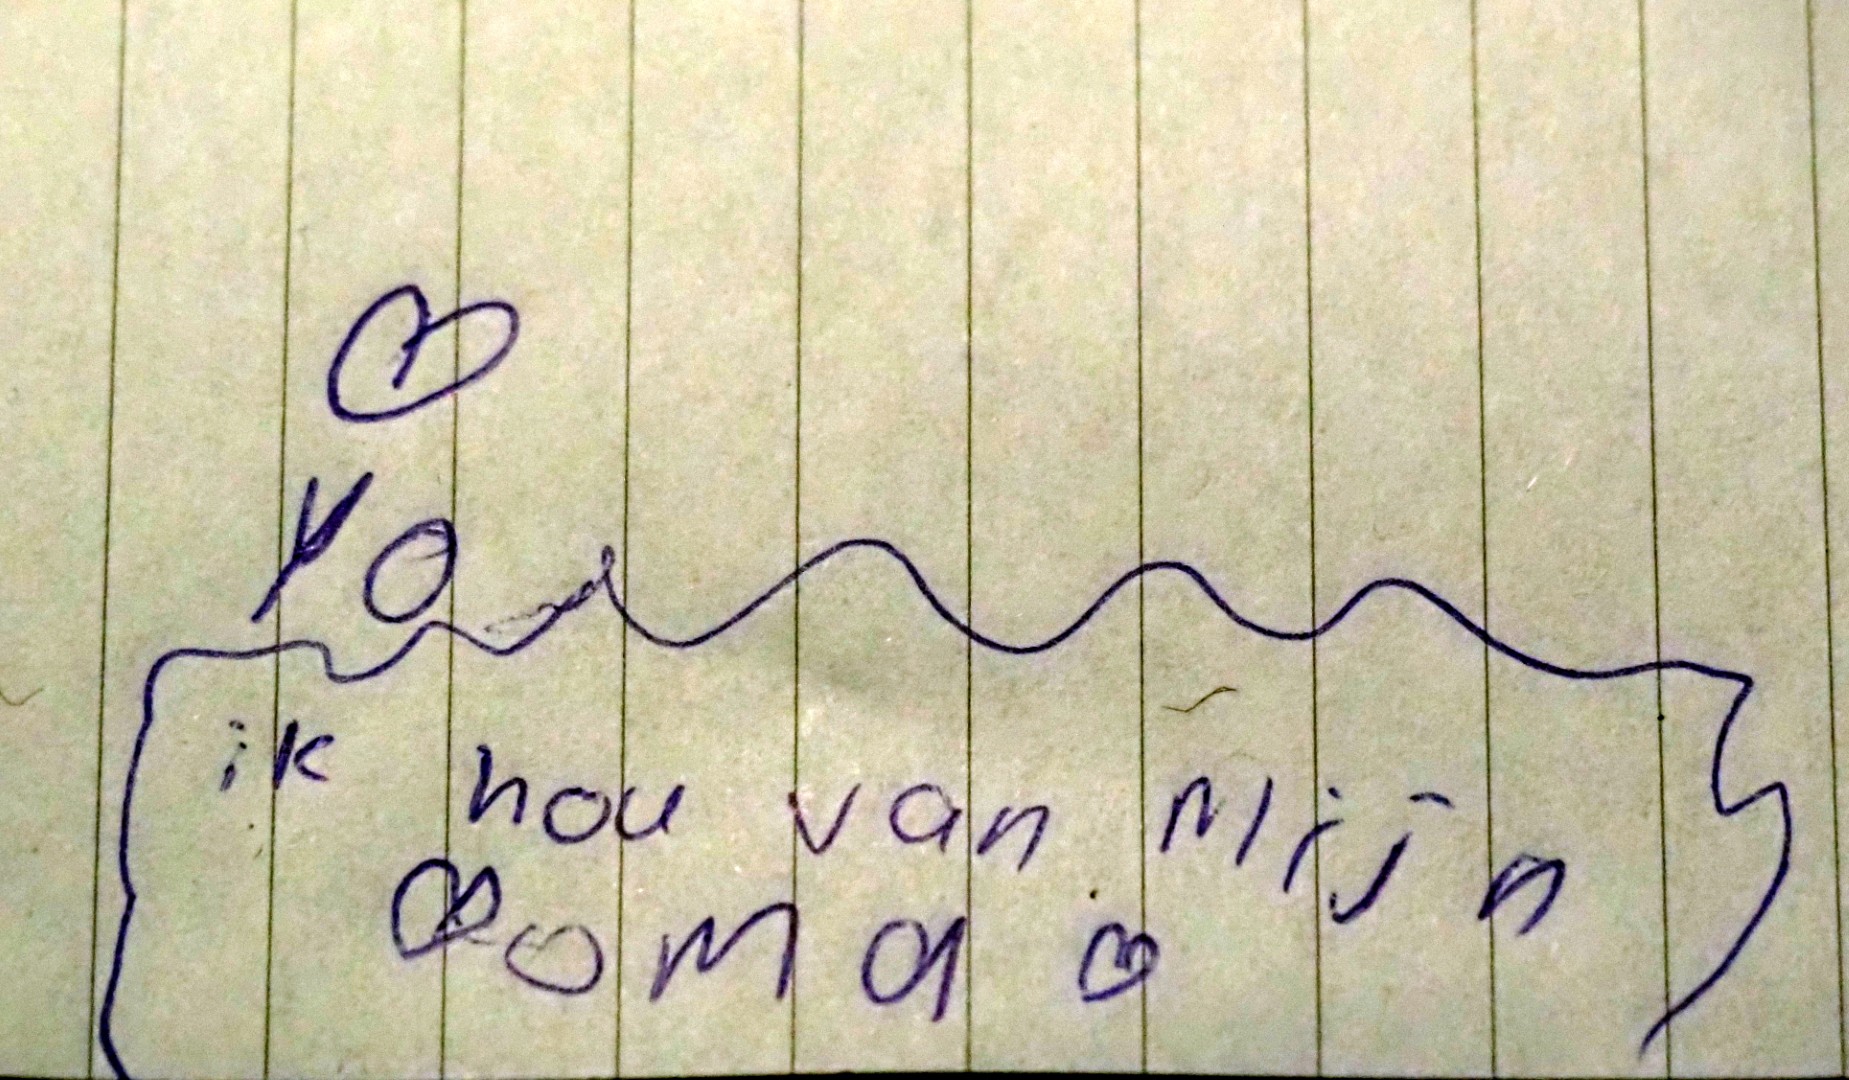 yo
ik hou van mijn
oma